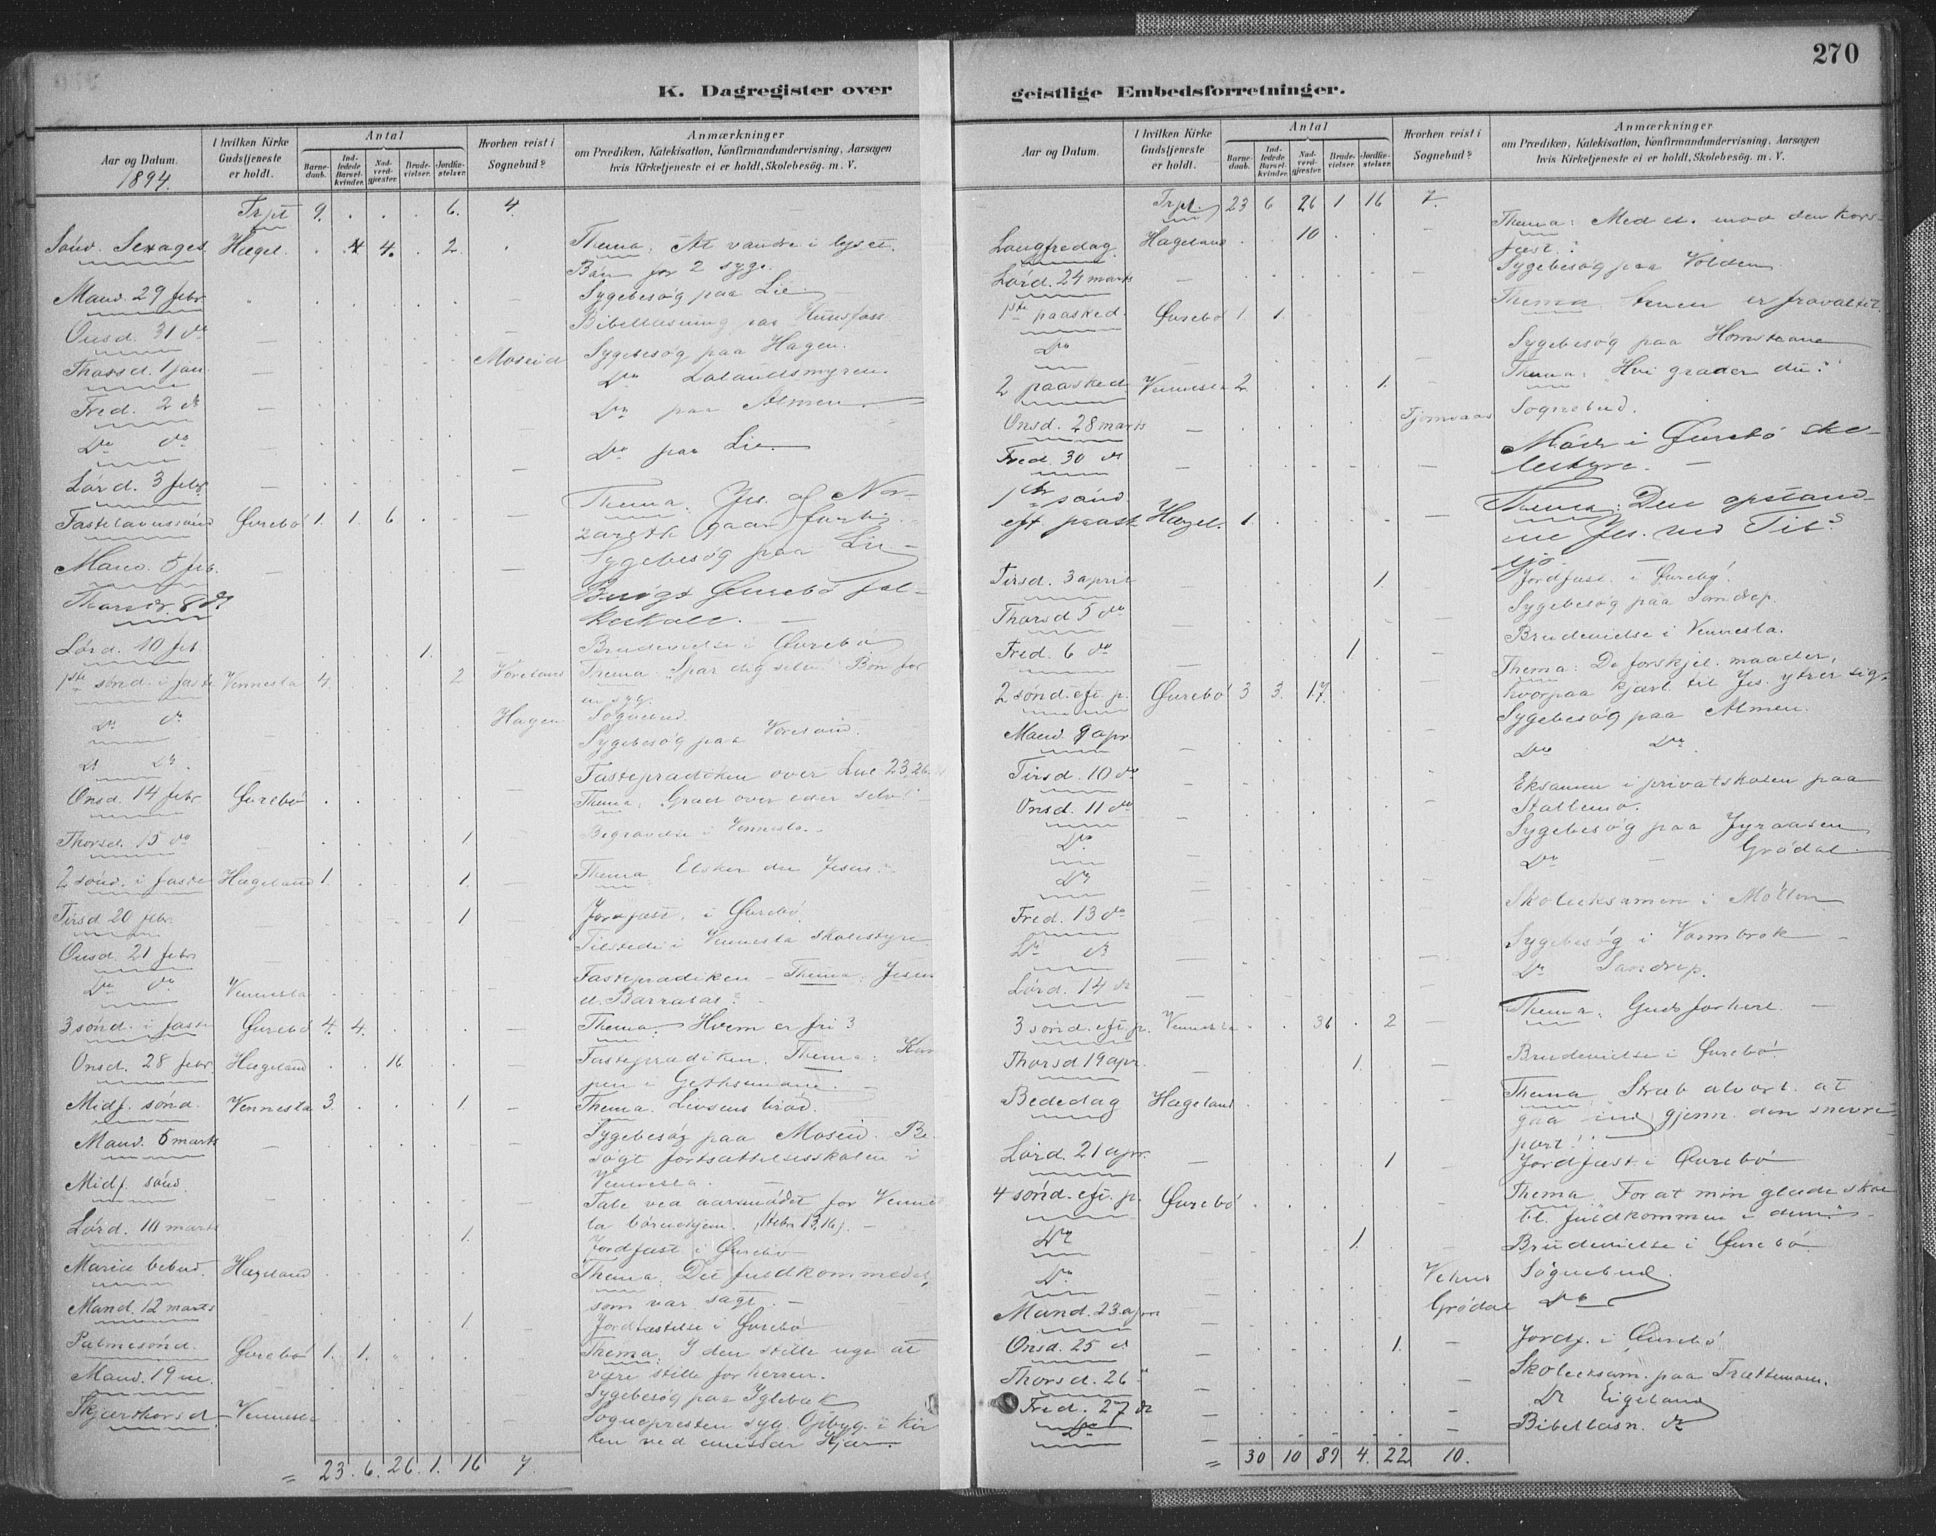 270
K. Dagregister over geistlige Embedsforretninger.
Aar og Datum. 1894.
I hvilken Kirke Gudstjeneste er holdt.
Antal
Barnedaab.
Indledede Barselkvinder.
Nadverdgjester.
Brudevielser.
Jordfæstelser.
Hvorhen reist i Sognebud?
Anmærkninger
om Prædiken, Katekisation, Konfirmandundervisning, Aarsagen
hvis Kirketjeneste ei er holdt, Skolebesøg. m. V.
Trpt 9. . . . 6. 4.
Sønd. Sexages. Hægel. . . 4. . 2. . Thema: At vandre i lyset.
Bøn for 2 syge.
Mand. 29 febr. Sygebesøg paa Lie
Onsd. 31 do Bibellæsning paa Hunsfoss
Thorsd. 1 jan. Moseid Sygebesøg paa Hagen.
Fred. 2 do Do Lalandsmyren.
Do do Do paa Almen
Lørd. 3 febr. Do paa Lie
Fastelavnssønd Øvrebø 1. 1. 6 Thema: Jes. af Na-
zareth gaar forbi
Mand. 5 feb. Sygebesøg paa Lie
Thorsd. 8 do Besøgt Øvrebø fol-
keskole.
Lørd. 10 feb. 1. Brudevielse i Øvrebø
1ste sønd. i faste Vennesla 4. 2 Thema: Spar dig selv! Bøn for
en syg.
Do do Hagen Sognebud.
Do Do. Sygebesøg paa
Onsd. 14 febr Øvrebø Fasteprædiken over Luc 23,26
Thema: Græd over eder selv!
Thorsd. 15 do 1 Begravelse i Vennesla.
2 sønd. i faste Hægeland 1. 1. Thema: Elsker du Jesus?
Tirsd 20 febr. 1 Jordfæst. i Øvrebø.
Onsd. 21 febr Tilstede i Vennesla skolestyre.
Do do Vennesla Fasteprædiken – Thema: Jesus
el. Barrabas?
3 sønd. i faste Øvrebø 4. 4. Thema: Hvem er fri?
Onsd. 28 febr. Hægeland 16 Fasteprædiken. Thema: Kam
pen i Gethsemane.
Midf. sønd. Vennesla 3. 1 Thema. Livsens brød.
Mand. 5 marts Sygebesøg paa Moseid. Be-
søgt fortsættelsesskolen i
Vennesla.
Midf. sønd. Tale ved aarsmødet for Vennes
la børnehjem. (Hebr 13,16).
Lørd. 10 marts 1. Jordfæst i Øvrebø
Mariæ bebud. Hægeland Thema: Det fuldkommedes,
som var sagt.
Mand. 12 marts 1 Jordfæstelse i Øvrebø
Palmesønd. Øvrebø 1. 1. Thema: I den stille uge at
være stille for herren.
Mand. 19 m. Sygebesøg paa Iglebæk
Skjærthorsd Vennesla Sognepresten syg. Opbyg. i kir
ken ved emissær
= 23. 6. 26. 1. 16 7.
Aar og Datum.
I hvilken Kirke Gudstjeneste er holdt.
Antal
Barnedaab.
Indledede Barselkvinder.
Nadverdgjester.
Brudevielser.
Jordfæstelser.
Hvorhen reist i Sognebud?
Anmærkninger
om Prædiken, Katekisation, Konfirmandundervisning, Aarsagen
hvis Kirketjeneste ei er holdt, Skolebesøg. m. V.
Trpt. 23 6 26 1 16 7.
Langfredag Hægeland 10 Thema: Med el. mod den kors-
fæst.?
Lørd. 24 marts Sygebesøg paa Volden
1ste paasked. Øvrebø 1 1. Thema Stenen er fravæltet.
Do Sygebesøg paa
2 paasked Vennesla 2 1. Thema: Hvi græder du?
Onsd. 28 marts Sognebud.
Fred. 30 do Møde i Øvrebø sko-
lestyre.
1ste sønd
eft paaske Hægel. 1. Thema: Den opstand-
ne Jes. ved Tib.s
sjø
Tirsd. 3 april 1. Jordfæst. i Øvrebø.
Thorsd 5 do Sygebesøg paa
Fred. 6 do 1 Brudevielse i Vennesla.
2 sønd. eft p. Øvrebø 3 3. 17. Thema: De forskjel. maader,
hvorpaa kjærl. til Jes. ytrer sig.
Mand. 9 apr. Sygebesøg paa Almen.
Tirsd. 10 do Do Do
Onsd. 11 do Eksamen i privatskolen paa
Stallemo.
Do Sygebesøg paa
Do Do Grødal
Fred. 13 do Skoleeksamen i
Do do Sygebesøg i
Lørd. 14 do Do
3 sønd. eft p. Vennesla 36 . 2 Thema: Guds forhere.
Thorsd 19 apr. 1. Brudevielse i Øvrebø
Bededag Hægeland Thema. Stræb alvorl. at
gaa ind gjenn. den snevre
port!
Lørd. 21 apr. 1 Jordfæst. i Øvrebø
4 sønd. eft. p. Øvrebø Thema. For at min glæde skal
bl. fuldkommen i dem
Do 1. Brudevielse i Øvrebø
Do. Sognebud
Mand. 23 apr. Grødal Do
Onsd. 25 do 1. Jordf. i Øvrebø
Thorsd. 26 " Skoleeksam. paa
Fred. 27 do Do Eigeland
Do Bibellæsn. do
= 30 10 89 4. 22 10.